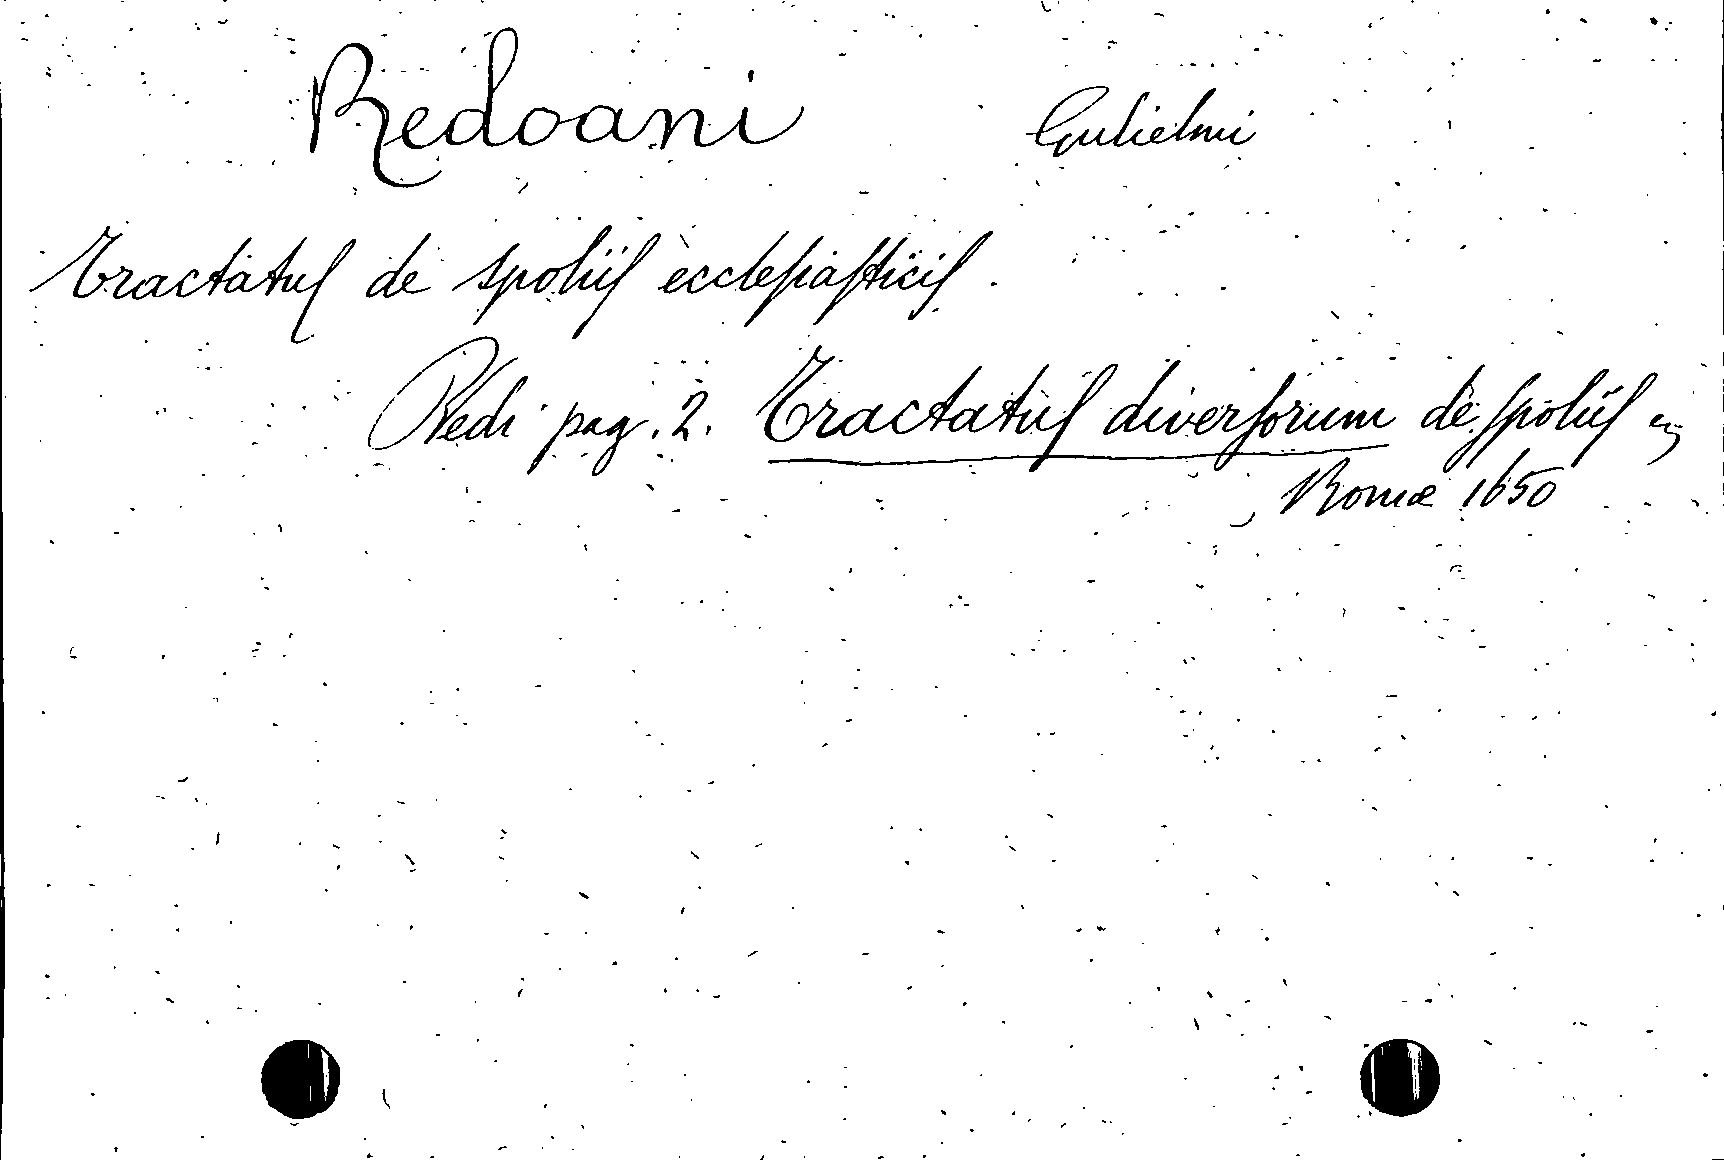 Redoani Gulielmi
Tractatuſ de spoliiſ eccleſiaſticiſ.
Vedi pag. 2. Tractatuſ diverſorum de ſpoliiſ
Romæ 1650